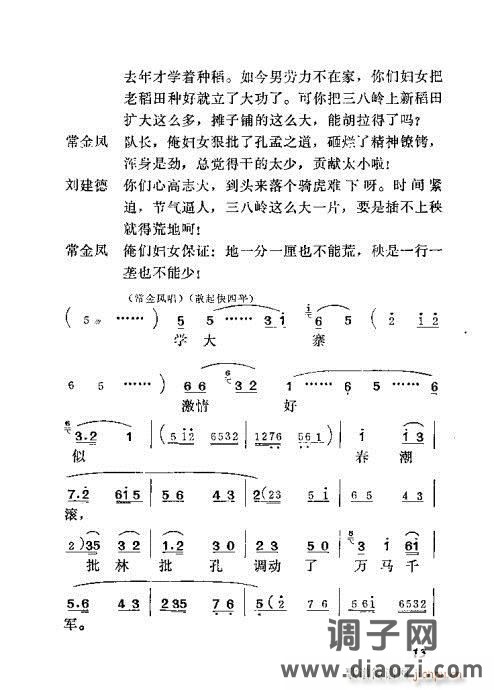 去年才学着种稻。如今男劳力不在家，你们妇女把
老稻田种好就立了大功了。可你把三八岭上新稻田
扩大这么多，摊子铺的这么大，能胡拉得了吗？
常金凤 队长，俺妇女狠批了孔孟之道，砸烂了精神镣铐，
浑身是劲，总觉得干的太少，贡献太小啦！
刘建德 你们心高志大，到头来落个骑虎难下呀。时间紧
迫，节气逼人，三八岭这么大一片，要是插不上秧
就得荒地呵！
常金凤 俺们妇女保证：地一分一厘也不能荒，秧是一行一
垄也不能少！
（常金凤唱）（散起快四平）
( 5 …… ) 5 5 3 1 6 ( 2 i2
学大 寨
6 5 …… ) 6 6 3 2 1 …… 6 5 …… 6
激情 好
3·2 1 (5 i2 6532 1276 56 1) 1 1 3
似 春潮
7·2 6i5 5 6 4 3 2 (23 5 i 6 5 4 3
滚，
2 ) 35 3 2 1·2 3 0 2 3 5 0 3 1 6i
批林批孔调动了万马千
5·6 4 3 235 7 6 5·( 2 7 6 5 6i 6532
军。
13
调子网
www.diaozi.com